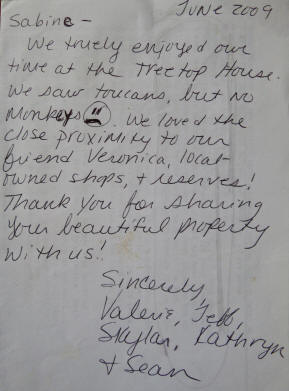 June 2009
Sabine -
We truely enjoyed our
time at the Treetop House.
We saw toucans, but no
monkeys. We loved the
close proximity to our
friend Veronica, local-
owned shops, + reserves!
Thank you for sharing
your beautiful property
with us!
Sincerely,
Valerie, Jeff,
Skylar, Kathryn
+ Sean